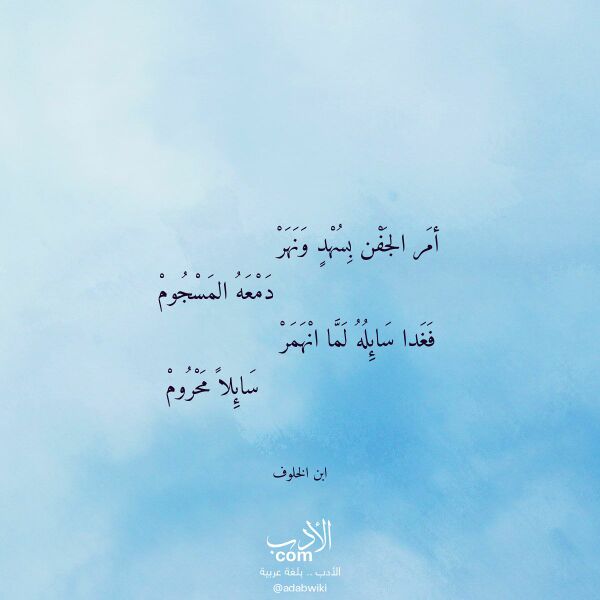 أمَر الجَفْن بِسُهْدٍ وَنَهَرْ
دَمْعَهُ المَسْجُومْ
فَغَدا سَايِٕلُهُ لَمَّا انْهَمَرْ
سَايِٕلاً مَحْرُومْ
ابن الخلوف
الأدب
com
الأدب .. بلغة عربية
@adabwiki